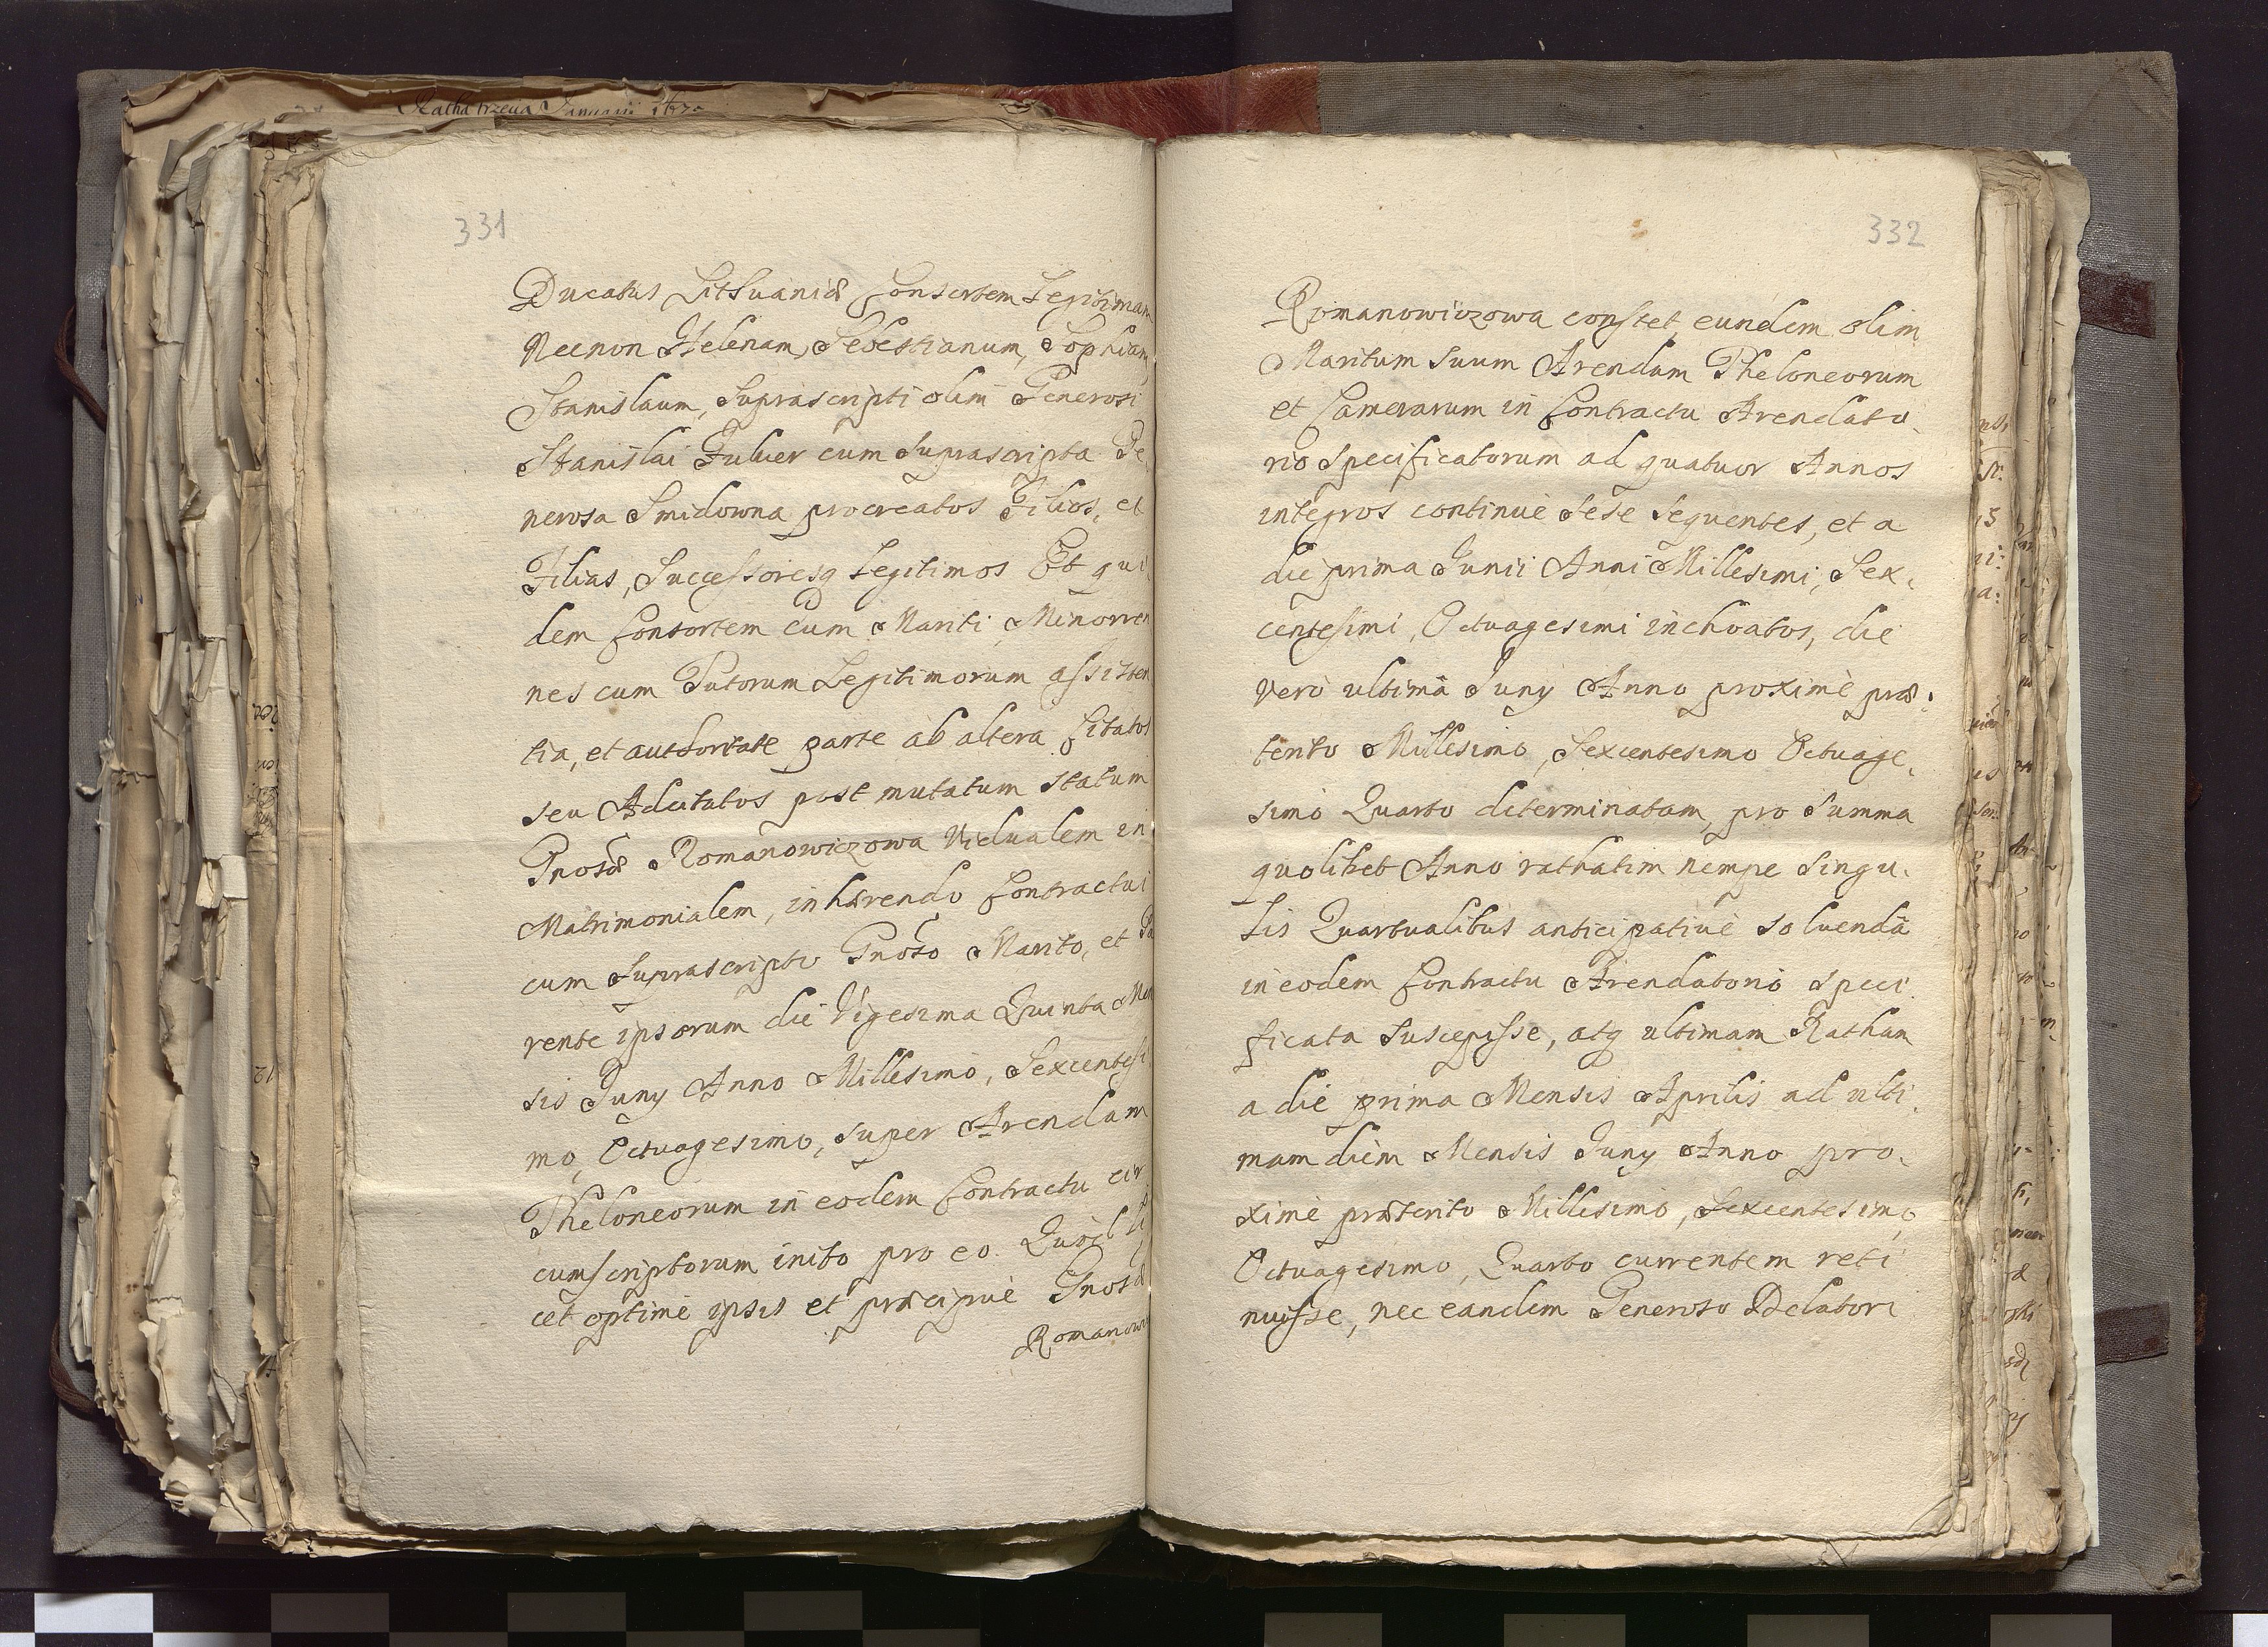 331
Ducatus Lithuaniæ Consortem Legitimam
Necnon Helenam, Sebestianum, Sophiam
Stanislaum, Suprascripti olim Generosi
Stanislai cum Suprascripta Ge,
nerosa Smidowna procreatos Filios, et
Filias, Successoresq Legitimos Et qui,
dem Consortem cum Mariti Minorren
nes cum Tutorum Legitimorum assisten
tia, et authoritate parte ab altera Citatos
seu Adcitatos post mutatum statum
Gnosæ Romanowiczowa Vidualem in
Matrimonialem, inhærendo Contractui
cum Suprascripto Gnoso Marito, et Pa
rente ipsorum die Vigesima Quinta Men
sis Juny Anno Millesimo, Sexcentesi
mo, Octuagesimo, super Arendam
Theloneorum in eodem Contractu cir
cumscriptorum inito pro eo. Quod li
cet optimè ipsis et præcipuè Gnosæ
Romanowi
332
Romanowiczowa constet eundem olim
Maritum suum Arendam Theloneorum
et Camerarum in Contractu Arendato,
rio Specificatorum ad quatuor Annos
integros continuè sese sequentes, et a
die prima Junii Anni Millesimi, Sex,
centesimi, Octuagesimi inchoatos, die
verò ultima Juny Anno proximè præ,
terito Millesimo, Sexcentesimo Octuage,
simo Quarto determinatam, pro Summa
quolibet Anno rathatim nempe singu,
lis Quartualibus anticipativè soluenda
in eodem Contractu Arendatorio speci
ficata suscepisse, atq ultimam Ratham
a die prima Mensis Aprilis ad ulti,
mam diem Mensis Juny Anno pro,
ximè præterito Millesimo, Sexcentesimo,
Octuagesimo, Quarto currentem reti
nuisse, nec eandem Generoso Delatori